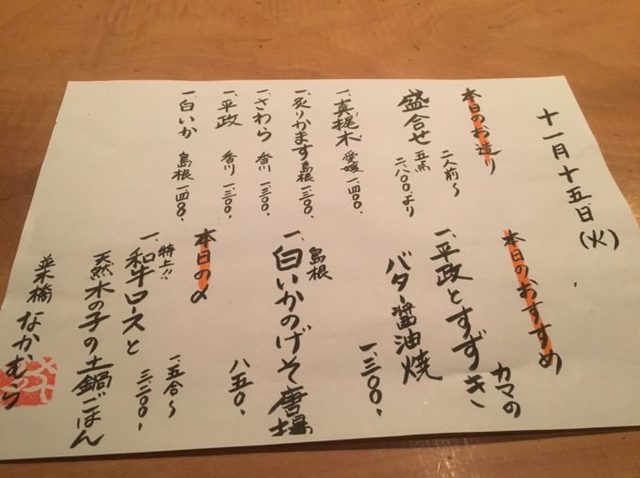 十一月十五日(火)
本日のお造り
二人前〜
盛合せ 五点 二、八〇〇、より
一、真梶木 愛媛 一、四〇〇、
一、炙りかます 島根 一、三〇〇、
一、さわら 香川 一、三〇〇、
一、平政 香川 一、三〇〇、
一、白いか 島根 一、四〇〇、
本日のおすすめ
一、平政とすずき カマの
バター醤油焼
一、三〇〇、
島根
一、白いかのげそ唐揚
八五〇、
本日の〆
特上!!
一、和牛ロースと
天然木の子の土鍋ごはん
一、五合〜
三、二〇〇、
並木橋 なかむら